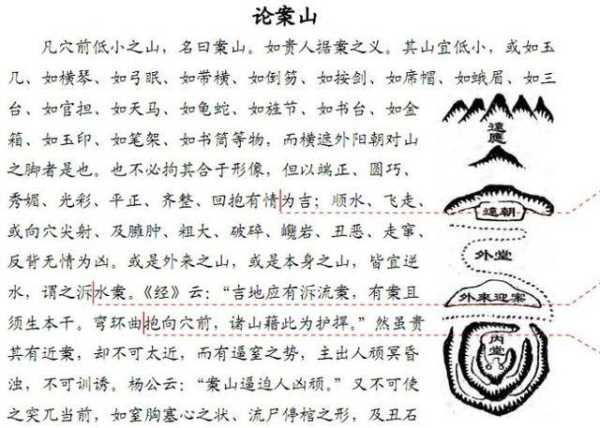 论案山
凡穴前低小之山，名曰案山。如贵人据案之义。其山宜低小，或如玉
几、如横琴、如弓眠、如带横、如倒笏、如按剑、如席帽、如蛾眉、如三
台、如官担、如天马、如龟蛇、如旌节、如书台、如金
箱、如玉印、如笔架、如书筒等物，而横遮外阳朝对山
之脚者是也。也不必拘其合于形像，但以端正、圆巧、
秀媚、光彩、平正、齐整、回抱有情为吉；顺水、飞走、
或向穴尖射、及臃肿、粗大、破碎、巉岩、丑恶、走窜、
反背无情为凶。或是外来之山，或是本身之山，皆宜逆
水，谓之泝水案。《经》云：“吉地应有泝流案，有案且
须生本干。弯环曲抱向穴前，诸山藉此为护捍。”然虽贵
其有近案，却不可太近，而有逼窒之势，主出人顽冥昏
浊，不可训诱。杨公云：“案山逼迫人凶顽。”又不可使
之突兀当前，如窒胸塞心之状、流尸停棺之形，及丑石
遠應
遠朝
外堂
外来迎案
内堂